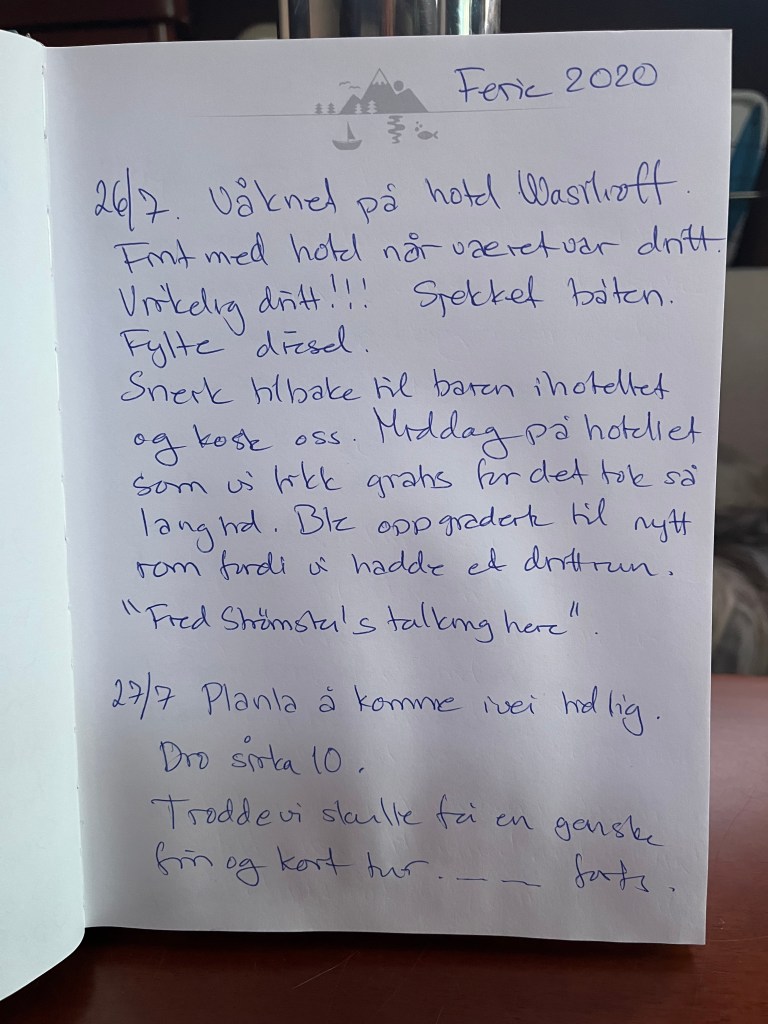 Ferie 2020
26/7. Våknet på hotel Wasshoff.
Fint med hotel når været var dritt.
Virkelig dritt!!! Sjekket båten.
Fylte diesel.
Snek tilbake til baren i hotellet
og kose oss. Middag på hotellet
som vi fikk gratis for det tok så
lang tid. Ble oppgradert til nytt
rom fordi vi hadde et drittrum.
"Fred Strämster's talking here".
27/7 Planla å komme ivei tidlig.
Dro sirka 10.
Trodde vi skulle få en ganske
fin og kort tur. _ _ _ forts.